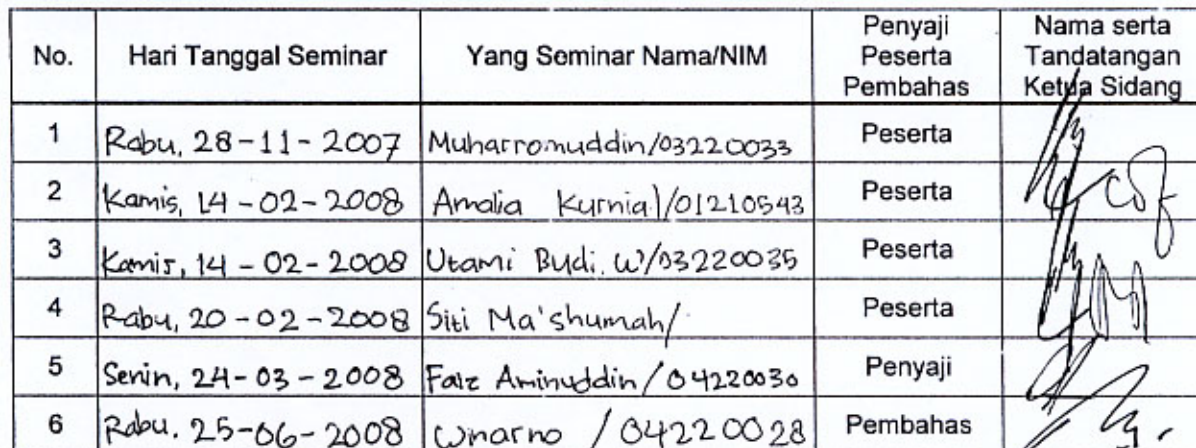 No. Hari Tanggal Seminar Yang Seminar Nama/NIM Penyaji Peserta Pembahas Nama serta Tandatangan Ketua Sidang
1 Rabu, 28-11-2007 Muharromuddin/03220033 Peserta
2 Kamis, 14-02-2008 Amalia Kurnia/01210543 Peserta
3 Kamis, 14-02-2008 Utami Budi. W/03220035 Peserta
4 Rabu, 20-02-2008 Siti Ma'shumah/ Peserta
5 Senin, 24-03-2008 Faiz Aminuddin/04220030 Penyaji
6 Rabu. 25-06-2008 Winarno /04220028 Pembahas